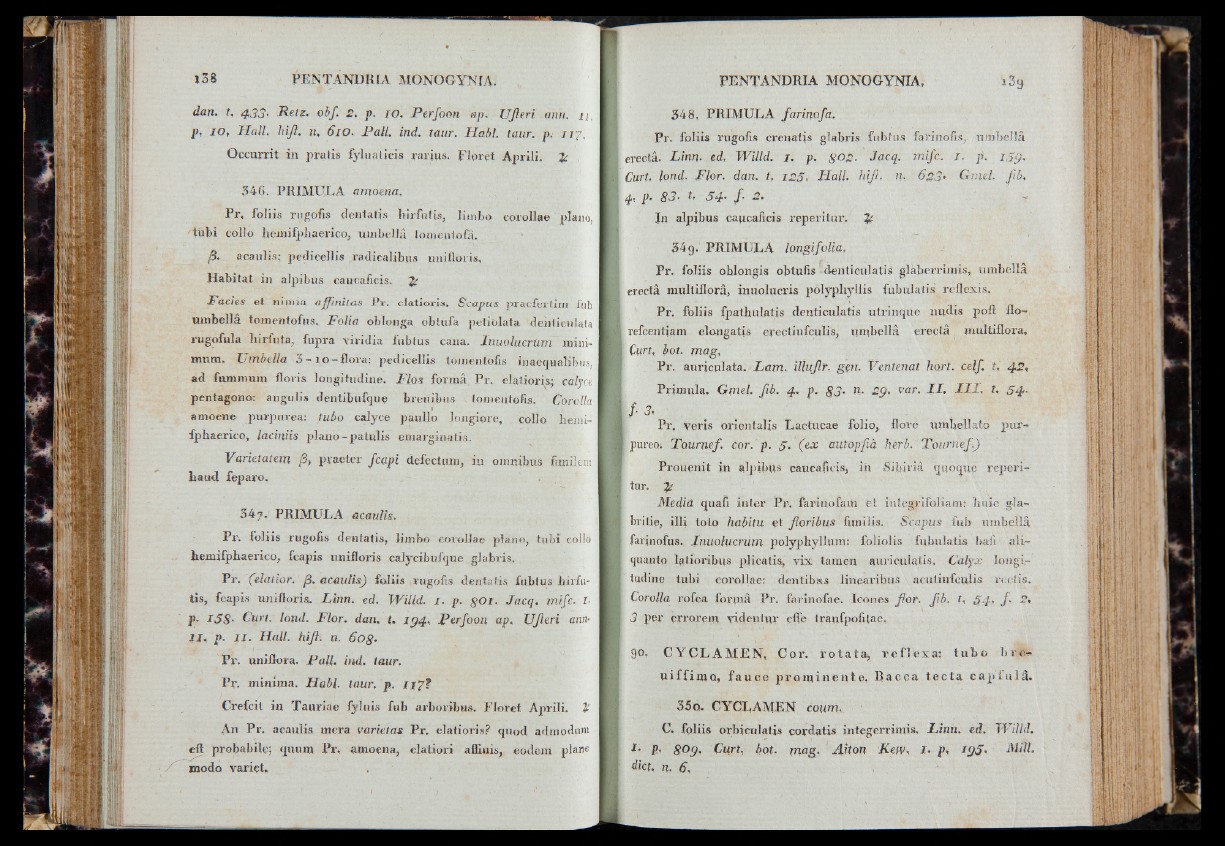 138 PENTANDRIA MONOGYNIA.
dan. t. 433. Retz. obſ. 2. p. 10. Perſoon ap. Uſteri ann. 11.
p. 10. Hall. hiſt. n. 610. Pall. ind. taur. Habl. taur. p. 117.
Occurrit in pratis ſyluaticis rarius. Floret Aprili. ♃
346. PRIMULA amoena.
Pr. foliis rugoſis dentatis hirſutis, limbo corollae plano,
tubi collo hemiſphaerico, umbellâ tomentoſâ.
β. acaulis: pedicellis radicalibus unifloris.
Habitat in alpibus caucaſicis. ♃
Facies et nimia affinitas Pr. elatioris. Scapus praeſertim ſub
umbellâ tomentoſus. Folia oblonga obtuſa petiolata denticulata
rugoſula hirſuta, ſupra viridia ſubtus cana. Inuolucrum mini-
mum. Umbella 3-10-flora: pedicellis tomentoſis inaequalibus,
ad ſummum floris longitudine. Flos formâ Pr. elatioris; calyce
pentagono: angulis dentibuſque breuibus tomentoſis. Corolla
amoene purpurea: tubo calyce paullo longiore, collo hemi-
ſphaerico, laciniis plano-patulis emarginatis.
Varietatem β, praeter ſcapi defectum, in omnibus ſimilem
haud ſeparo.
347. PRIMULA acaulis.
Pr. foliis rugoſis dentatis, limbo corollae plano, tubi collo
hemiſphaerico, ſcapis unifloris calycibuſque glabris.
Pr. (elatior. β. acaulis) foliis rugoſis dentatis ſubtus hirſu-
tis, ſcapis unifloris. Linn. ed. Willd. 1. p. 801. Jacq. miſc. 1.
p. 158. Curt. lond. Flor. dan. t. 194. Perſoon ap. Uſteri ann.
11. p. 11. Hall. hiſt. n. 609.
Pr. uniflora. Pall. ind. taur.
Pr. minima. Habl. taur. p. 117?
Creſcit in Tauriae ſyluis ſub arboribus. Floret Aprili. ♃
An Pr. acaulis mera varietas Pr. elatioris? quod admodum
eſt probabile; quum Pr. amoena, elatiori affinis, eodem plane
modo variet.
PENTANDRIA MONOGYNIA. 139
348. PRIMULA farinoſa.
Pr. foliis rugoſis crenatis glabris ſubtus farinoſis, umbellâ
erectâ. Linn. ed. Willd. 1. p. 802. Jacq. miſc. 1. p. 159.
Curt. lond. Flor. dan. t. 125. Hall. hiſt. n. 623. Gmel. ſib.
4. p. 83. t. 54. f. 2.
In alpibus caucaſicis reperitur. ♃
349. PRIMULA longifolia.
Pr. foliis oblongis obtuſis denticulatis glaberrimis, umbellâ
erectâ multiflorâ, inuolucris polyphyllis ſubulatis reflexis.
Pr. foliis ſpathulatis denticulatis utrinque nudis poſt flo-
reſcentiam elongatis erectiuſculis, umbellâ erectâ multiflora.
Curt. bot. mag.
Pr. auriculata. Lam. illuſtr. gen. Ventenat hort. celſ. t. 42.
Primula. Gmel. ſib. 4. p. 83. n. 29. var. II. III. t. 54.
f. 3.
Pr. veris orientalis Lactucae folio, flore umbellato pur-
pureo. Tournef. cor. p. 5. (ex autopſiâ herb. Tournef.)
Prouenit in alpibus caucaſicis, in Sibiriâ quoque reperi-
tur. ♃
Media quaſi inter Pr. farinoſam et integrifoliam: huic gla-
britie, illi toto habitu et floribus ſimilis. Scapus ſub umbellâ
farinoſus. Inuolucrum polyphyllum: foliolis ſubulatis baſi ali-
quanto latioribus plicatis, vix tamen auriculatis. Calyx longi-
tudine tubi corollae: dentibus linearibus acutiuſculis rectis.
Corolla roſea formâ Pr. farinoſae. Icones flor. ſib. t. 54. f. 2.
3 per errorem videntur eſſe tranſpoſitae.
90. CYCLAMEN. Cor. rotata, reflexa: tubo bre-
uiſſimo, fauce prominente. Bacca tecta capſulâ.
350. CYCLAMEN coum.
C. foliis orbiculatis cordatis integerrimis. Linn. ed. Willd.
1. p. 809. Curt. bot. mag. Aiton Kew. 1. p. 195. Mill.
dict. n. 6.